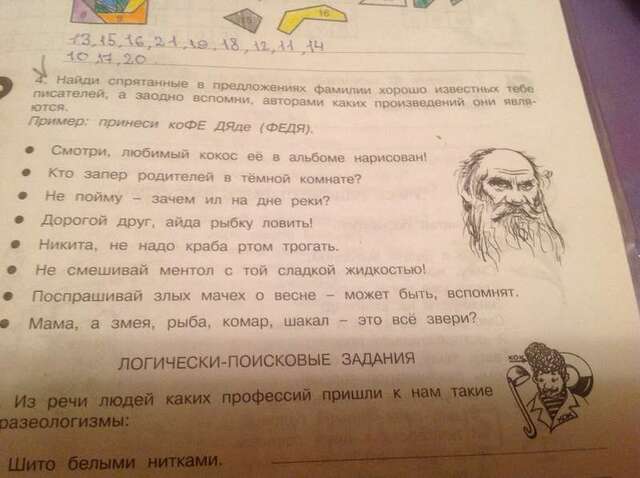 8
9
15
16
13, 15, 16, 21, 19, 18, 12, 11, 14
10, 17, 20
4. Найди спрятанные в предложениях фамилии хорошо известных тебе
писателей, а заодно вспомни, авторами каких произведений они явля-
ются.
Пример: принеси коФЕ ДЯде (ФЕДЯ).
• Смотри, любимый кокос её в альбоме нарисован!
• Кто запер родителей в тёмной комнате?
• Не пойму – зачем ил на дне реки?
• Дорогой друг, айда рыбку ловить!
• Никита, не надо краба ртом трогать.
• Не смешивай ментол с той сладкой жидкостью!
• Поспрашивай злых мачех о весне – может быть, вспомнят.
• Мама, а змея, рыба, комар, шакал – это всё звери?
ЛОГИЧЕСКИ-ПОИСКОВЫЕ ЗАДАНИЯ
Из речи людей каких профессий пришли к нам такие
разеологизмы:
Шито белыми нитками.